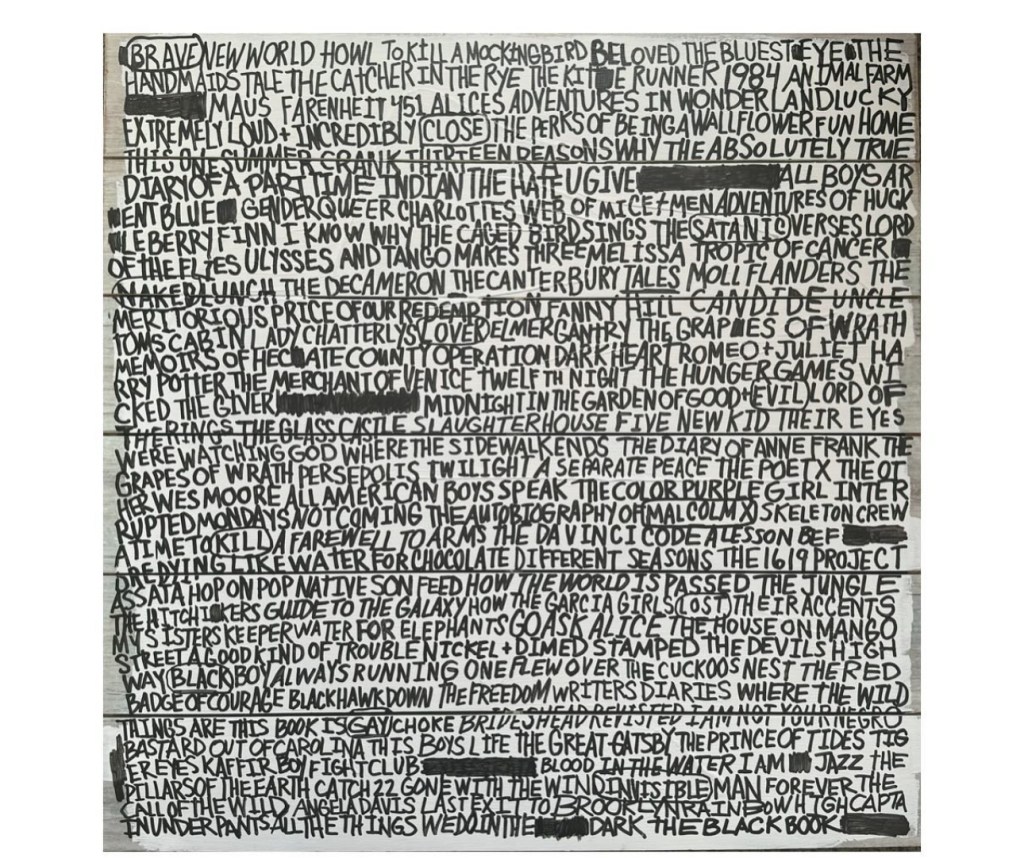 BRAVE NEW WORLD HOWL TO KILL A MOCKINGBIRD BELOVED THE BLUEST EYE THE
HANDMAIDS TALE THE CATCHER IN THE RYE THE KITE RUNNER 1984 ANIMAL FARM
MAUS FARENHEIT 451 ALICES ADVENTURES IN WONDERLAND LUCKY
EXTREMELY LOUD + INCREDIBLY CLOSE THE PERKS OF BEING A WALLFLOWER FUN HOME
THIS ONE SUMMER CRANK THIRTEEN REASONS WHY THE ABSOLUTELY TRUE
DIARY OF A PART TIME INDIAN THE HATE U GIVE ALL BOYS AR
ENT BLUE GENDERQUEER CHARLOTTES WEB OF MICE + MEN ADVENTURES OF HUCK
LEBERRY FINN I KNOW WHY THE CAGED BIRD SINGS THE SATANIC VERSES LORD
OF THE FLIES ULYSSES AND TANGO MAKES THREE MELISSA TROPIC OF CANCER
NAKED LUNCH THE DECAMERON THE CANTERBURY TALES MOLL FLANDERS THE
MERITORIOUS PRICE OF OUR REDEMPTION FANNY HILL CANDIDE UNCLE
TOMS CABIN LADY CHATTERLYS LOVER ELMER GANTRY THE GRAPES OF WRATH
MEMOIRS OF HECATE COUNTY OPERATION DARK HEART ROMEO + JULIET HA
RRY POTTER THE MERCHANT OF VENICE TWELFTH NIGHT THE HUNGER GAMES WI
CKED THE GIVER MIDNIGHT IN THE GARDEN OF GOOD + EVIL LORD OF
THE RINGS THE GLASS CASTLE SLAUGHTERHOUSE FIVE NEW KID THEIR EYES
WERE WATCHING GOD WHERE THE SIDEWALK ENDS THE DIARY OF ANNE FRANK THE
GRAPES OF WRATH PERSEPOLIS TWILIGHT A SEPARATE PEACE THE POET X THE OT
HER WES MOORE ALL AMERICAN BOYS SPEAK THE COLOR PURPLE GIRL INTER
RUPTED MONDAYS NOT COMING THE AUTOBIOGRAPHY OF MALCOLM X SKELETON CREW
A TIME TO KILL A FAREWELL TO ARMS THE DA VINCI CODE A LESSON BEF
RE DYING LIKE WATER FOR CHOCOLATE DIFFERENT SEASONS THE 1619 PROJECT
ASSATA HOP ON POP NATIVE SON FEED HOW THE WORLD IS PASSED THE JUNGLE
THE HITCHIKERS GUIDE TO THE GALAXY HOW THE GARCIA GIRLS LOST THEIR ACCENTS
MY SISTERS KEEPER WATER FOR ELEPHANTS GO ASK ALICE THE HOUSE ON MANGO
STREET A GOOD KIND OF TROUBLE NICKEL + DIMED STAMPED THE DEVILS HIGH
WAY BLACK BOY ALWAYS RUNNING ONE FLEW OVER THE CUCKOOS NEST THE RED
BADGE OF COURAGE BLACK HAWK DOWN THE FREEDOM WRITERS DIARIES WHERE THE WILD
THINGS ARE THIS BOOK IS GAY CHOKE BRIDESHEAD REVISITED I AM NOT YOUR NEGRO
BASTARD OUT OF CAROLINA THIS BOYS LIFE THE GREAT GATSBY THE PRINCE OF TIDES TIG
ER EYES KAFFIR BOY FIGHT CLUB BLOOD IN THE WATER I AM JAZZ THE
PILLARS OF THE EARTH CATCH 22 GONE WITH THE WIND INVISIBLE MAN FOREVER THE
CALL OF THE WILD ANGELA DAVIS LAST EXIT TO BROOKLYN RAINBOW HIGH CAPTA
IN UNDERPANTS ALL THE THINGS WE DO IN THE DARK THE BLACK BOOK